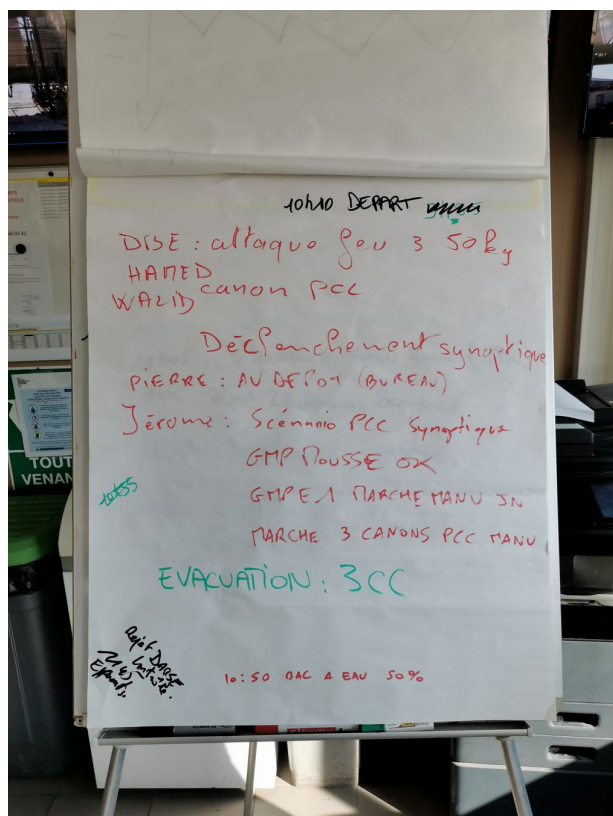 10h10 DEPART
DISE : attaque feu 3 50kg
HAMED
WALID canon PCC
Déclenchement synoptique
PIERRE : AU DEPOT (BUREAU)
Jérome : Scénario PCC Synoptique
GMP MOUSSE OK
GMPE1 MARCHE MANU JN
MARCHE 3 CANONS PCC MANU
TOUT
VENAN
10h55
EVACUATION : 3CC
Rejet DARSE
10:50 BAC A EAU 50%